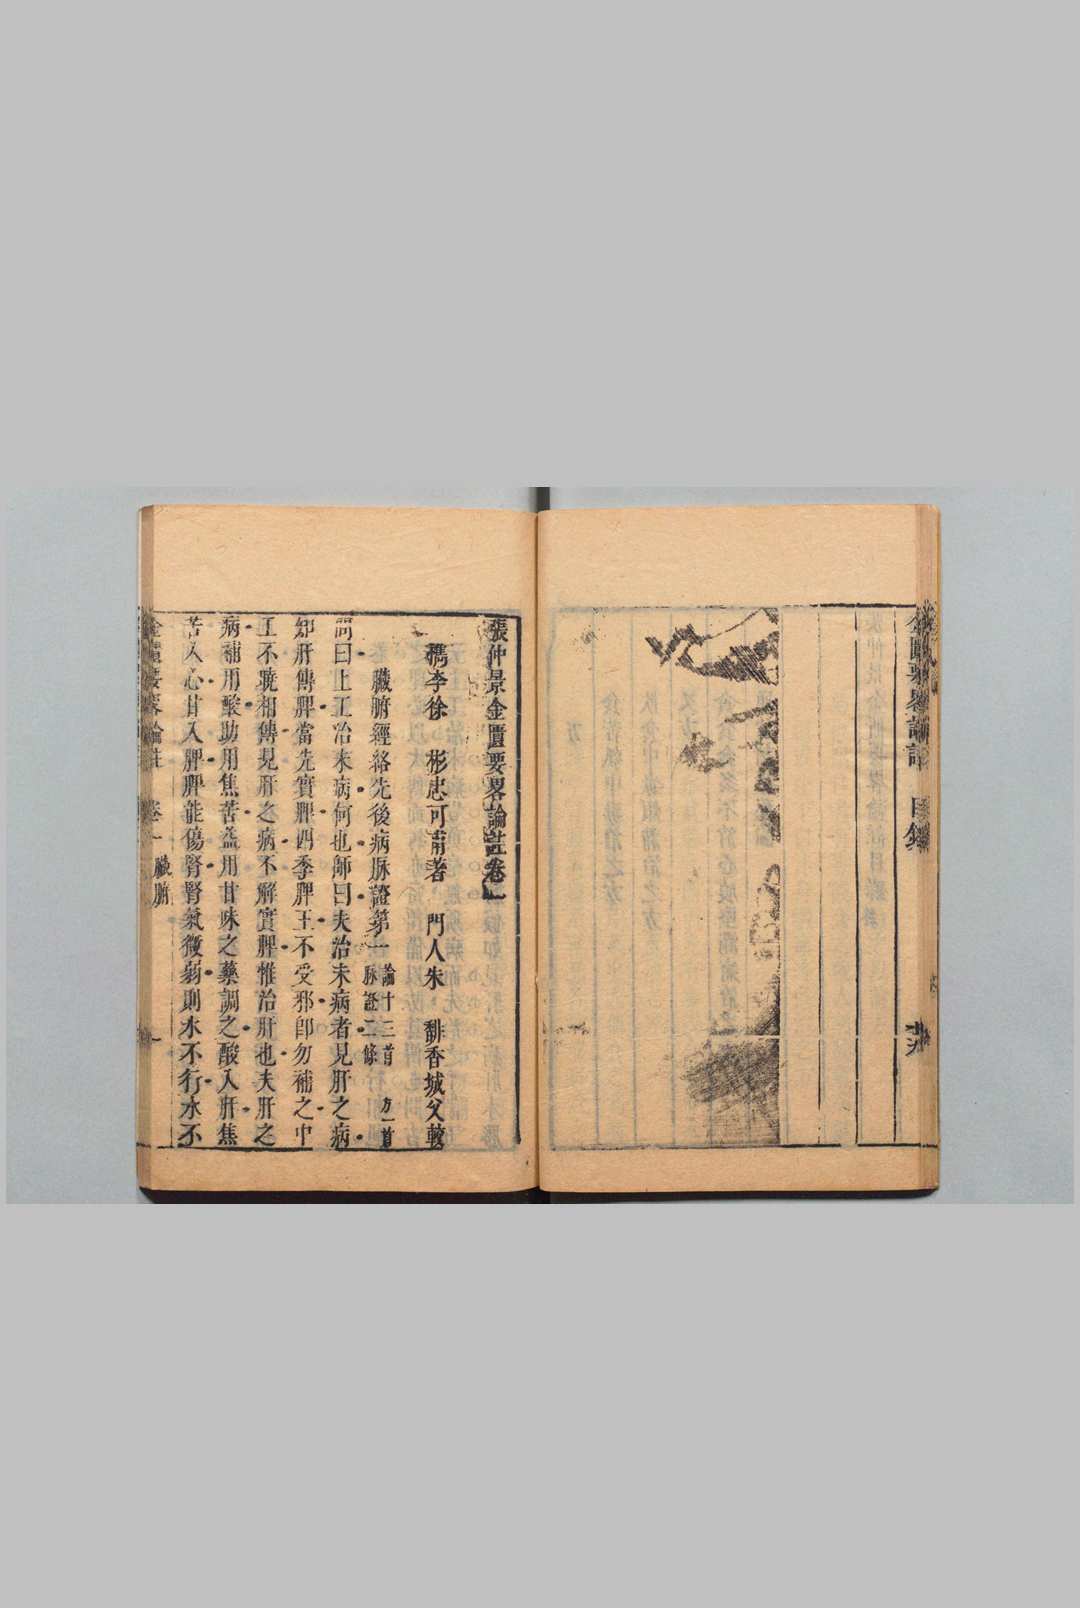 金匱要畧論註 目錄
張仲景金匱要畧論註卷一
檇李徐 彬忠可甫著 門人朱 黼香城父較
臟腑經絡先後病脉證第一 論十三首 脉證二條 方一首
問曰上工治未病何也師曰夫治未病者見肝之病
知肝傳脾當先實脾四季脾王不受邪卽勿補之中
工不曉相傳見肝之病不解實脾惟治肝也夫肝之
病補用酸助用焦苦益用甘味之藥調之酸入肝焦
苦入心甘入脾脾能傷腎腎氣微弱則水不行水不
金匱要畧論註 卷一 臟腑 一